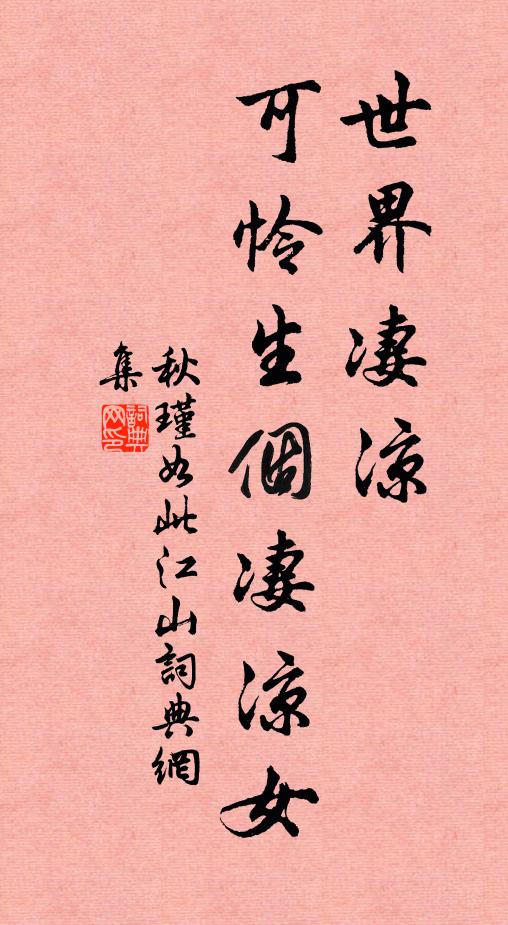 世界凄涼
可怜生個凄涼女
秋瑾如此江山詞典網
集
詞典
网印